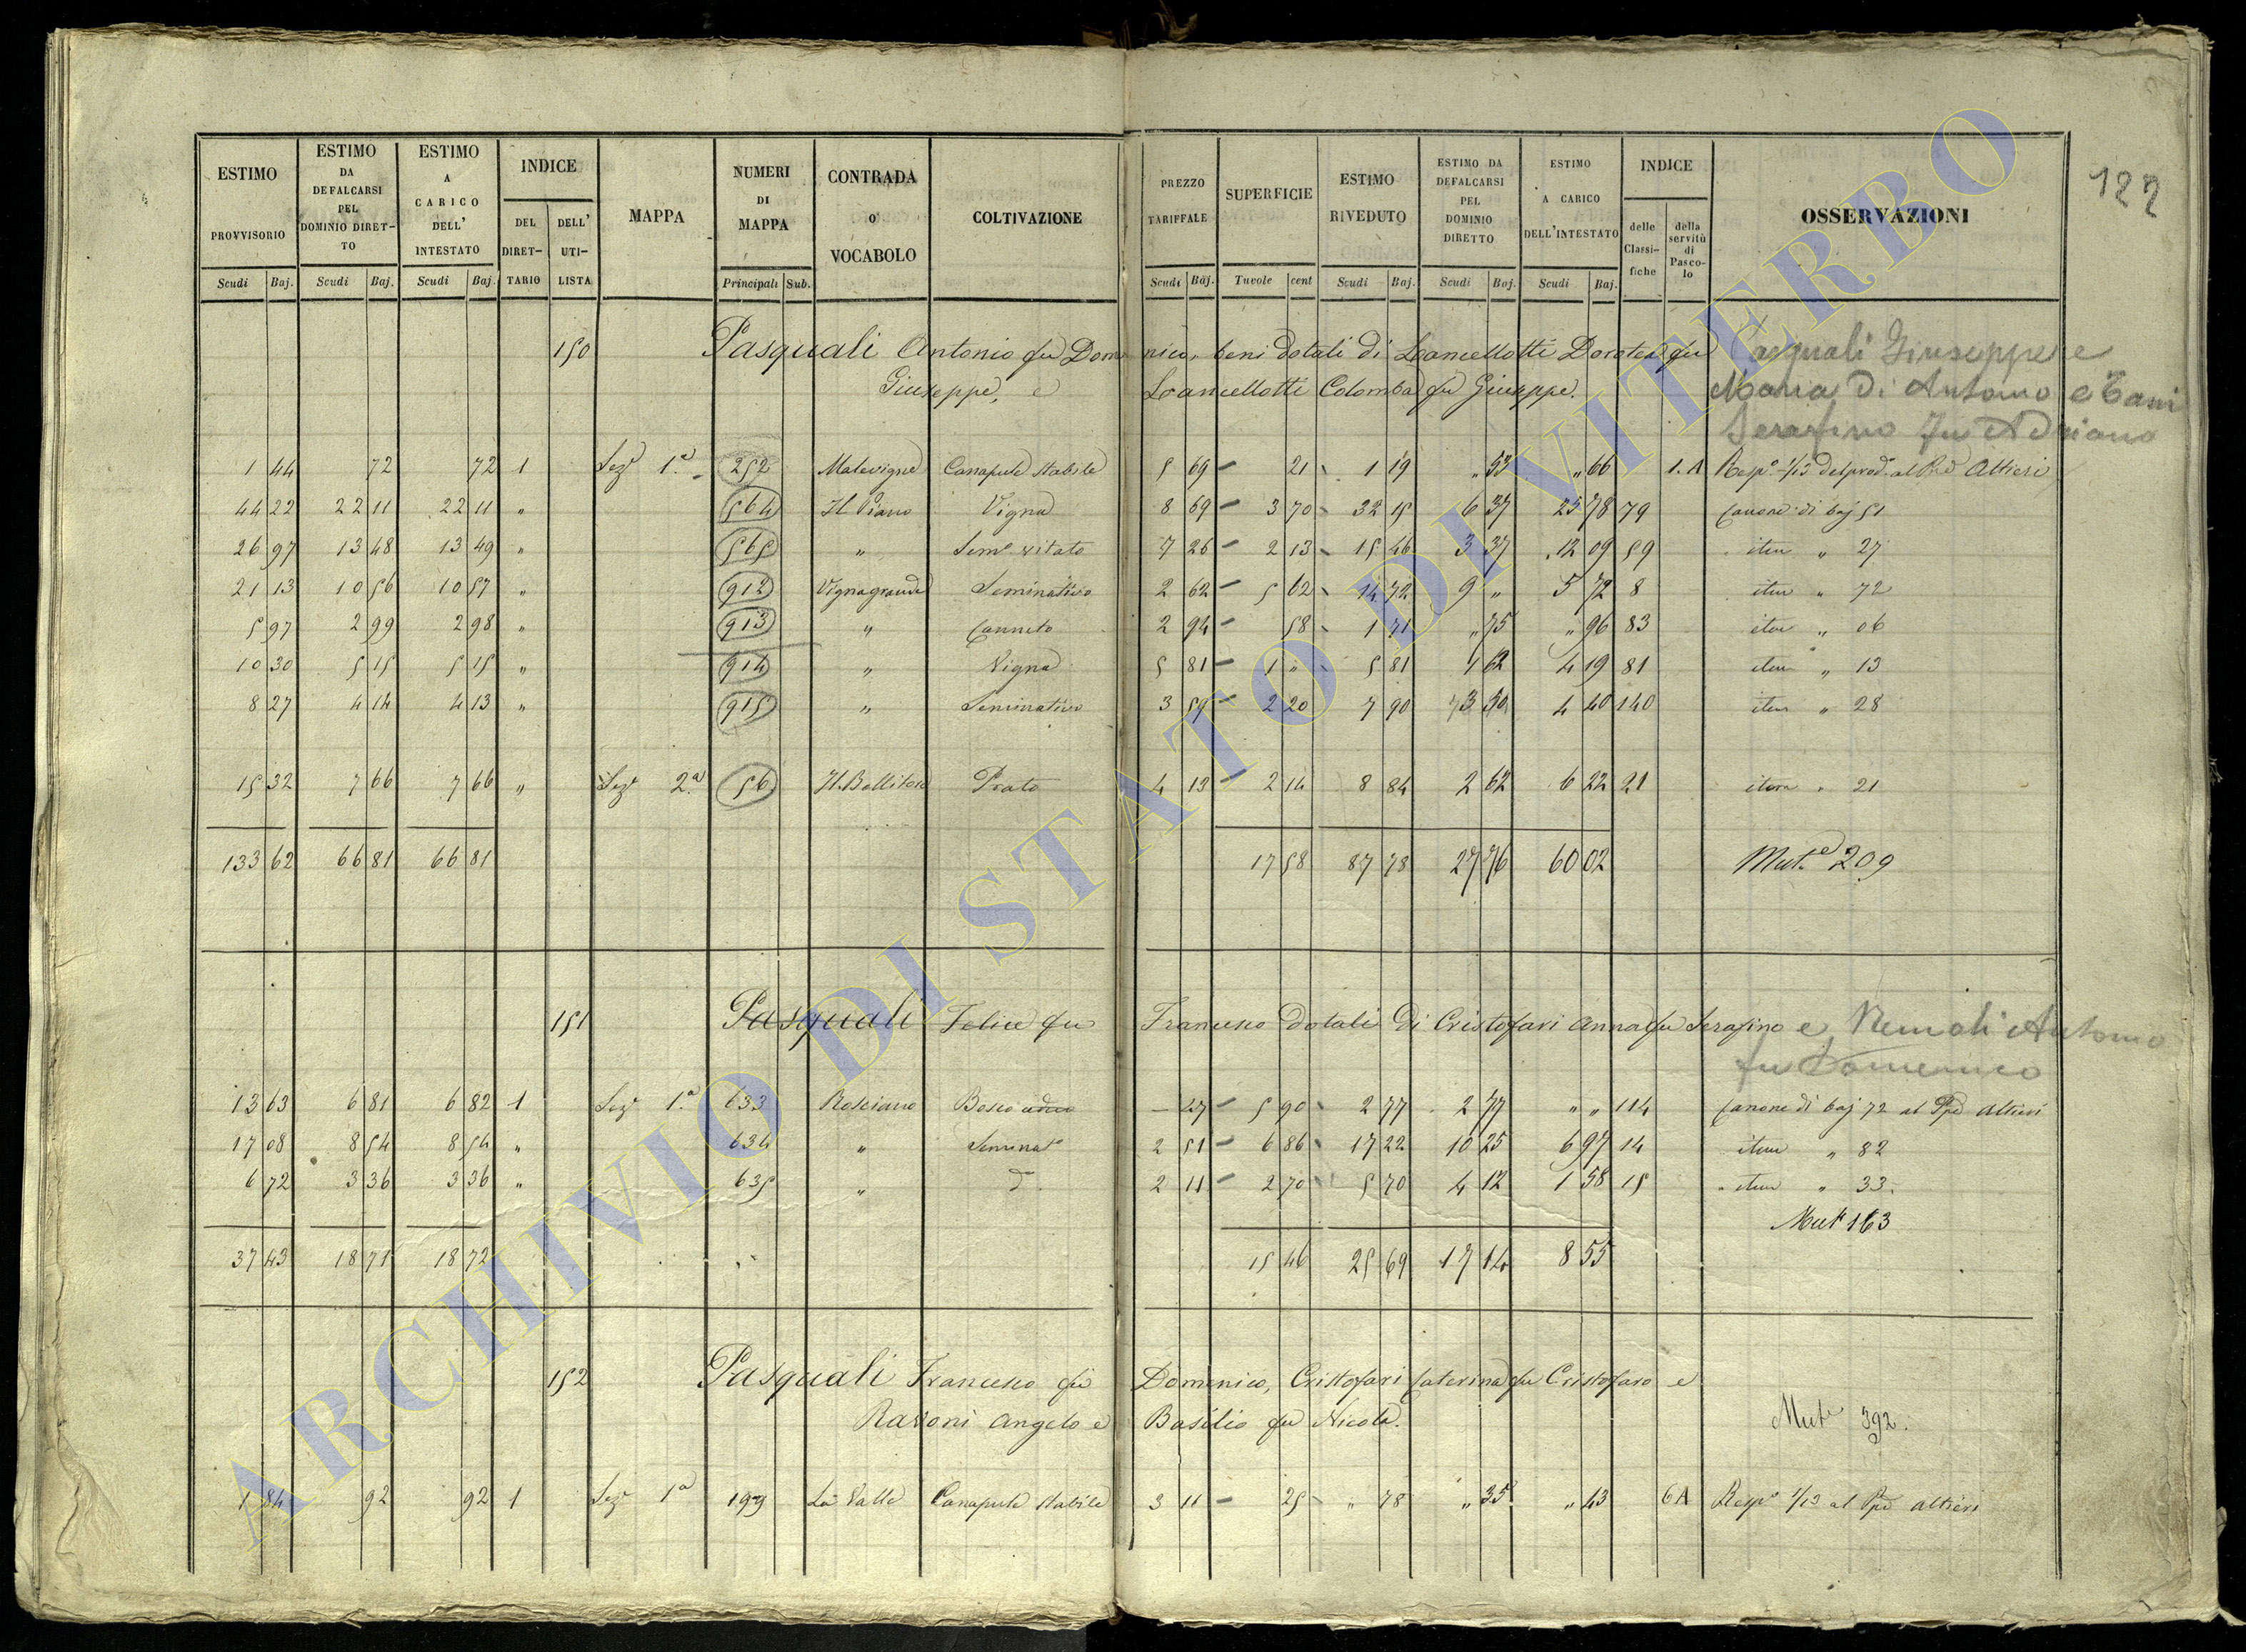 122
ESTIMO PROVVISORIO Scudi Baj.
ESTIMO DA DEFALCARSI PEL DOMINIO DIRETTO Scudi Baj.
ESTIMO A CARICO DELL' INTESTATO Scudi Baj.
INDICE DEL DIRETTARIO DELL' UTILISTA
MAPPA
NUMERI DI MAPPA Principali Sub.
CONTRADA o VOCABOLO
COLTIVAZIONE
PREZZO TARIFFALE Scudi Baj.
SUPERFICIE Tuvole cent
ESTIMO RIVEDUTO Scudi Baj.
ESTIMO DA DEFALCARSI PEL DOMINIO DIRETTO Scudi Baj.
ESTIMO A CARICO DELL'INTESTATO Scudi Baj.
INDICE delle Classifiche della servitù di Pascolo
OSSERVAZIONI
150 Pasquali Antonio fu Domenico, beni dotali di Lancellotti Dorotea fu
Giuseppe, e Lancellotti Colomba fu Giuseppe.
Pasquali Giuseppe e
Maria di Antonio e Tani
Serafino fu Adriano
1 44 72 72 1 Sezᵉ 1.ª 252 Canapule stabile 5 69 — 21 1 19 " 53 " 66 1. A al Altieri
44 22 22 11 22 11 " 564 Il Piano Vigna 8 69 — 3 70 32 15 6 37 25 78 79 Canone di baj 51
26 97 13 48 13 49 " 565 " Semº vitato 7 26 — 2 13 15 46 3 37 12 09 59 item " 27
21 13 10 56 10 57 " 912 Vignagrande Seminativo 2 62 — 5 62 14 72 9 " 5 72 8 item " 72
5 97 2 99 2 98 " 913 " Canneto 2 94 — 58 1 71 " 75 " 96 83 item " 06
10 30 5 15 5 15 " 914 " Vigna 5 81 — 1 " 5 81 1 62 4 19 81 item " 13
8 27 4 14 4 13 " 915 " Seminativo 3 59 — 2 20 7 90 3 50 4 40 140 item " 28
15 32 7 66 7 66 " Sezᵉ 2.ª 56 Prato 4 13 — 2 14 8 84 2 62 6 22 21 item " 21
133 62 66 81 66 81 17 58 87 78 27 76 60 02 Mutᵉ 209
151 Pasquali Felice fu Francesco dotali di Cristofari Anna fu Serafino e Antonio
fu Domenico
13 63 6 81 6 82 1 Sezᵉ 1.ª 633 Rosciano Bosco ceduo — 47 — 5 90 2 77 2 77 " " 114 Canone di baj 72 al Ppe Altieri
17 08 8 54 8 54 " 634 " Seminatº 2 51 — 6 86 17 22 10 25 6 97 14 item " 82
6 72 3 36 3 36 " 635 " dº 2 11 — 2 70 5 70 4 12 1 58 15 item " 33.
Mutᵉ 163
37 43 18 71 18 72 15 46 25 69 17 14 8 55
152 Pasquali Francesco fu Domenico, Cristofari Caterina fu Cristofaro e
Angelo e Basilio fu Nicola.
Mutᵉ 392.
1 84 92 92 1 Sezᵉ 1ª 199 La Valle Canapule stabile 3 11 — 25 " 78 " 35 " 43 6 A Respº 1/13 al Ppe Altieri
ARCHIVIO DI STATO DI VITERBO